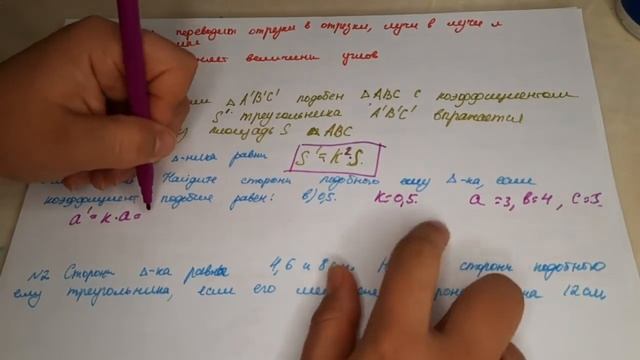 переводит отрезки в отрезки, лучи в лучи и
величины углов
△A'B'C' подобен △ABC с коэффициентом
S' треугольника A'B'C' выражается
площадь S △ABC
△-ника равны S'=K²·S.
Найдите стороны подобного ему △-ка, если
коэффициент подобия равен: в) 0,5. K=0,5. a=3, b=4, c=5.
a'=k·a=
N2 Стороны △-ка равны 4, 6 и 8 см. стороны подобного
ему треугольника, если его 12 см